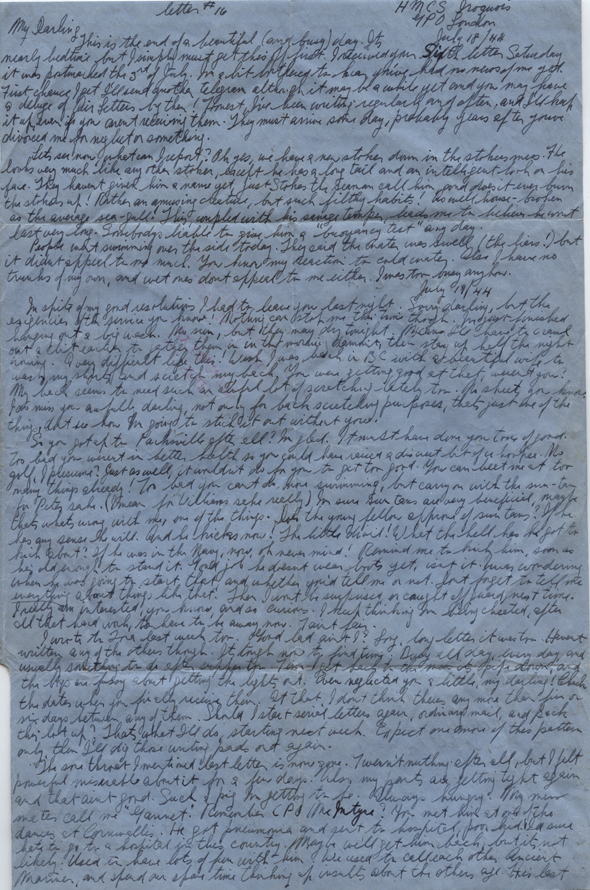 letter #16
HMCS Iroquois
GPO London
July 18/44
My Darling,
This is the end of a beautiful (and busy) day. Its
nearly bedtime but I simply must get this off first. I received your Sixth letter Saturday
it was postmarked the 3rd of July. I'm a bit bothered to hear you've had no news of me yet.
First chance I get I'll send another telegram although it may be a while yet and you may have
a deluge of air letters by then! Honest, I've been writing regularly and often, and I'll keep
it up even if you aren't receiving them. They must arrive some day, probably years after you've
divorced me for neglect or something.
Lets see now, what can I report? Oh yes, we have a new stoker down in the stokers mess. He
looks very much like any other stoker, except he has a long tail and an intelligent look on his
face. They haven't given him a name yet, just Stoker the Seaman call him, and does it ever burn
the stokers up! Rather an amusing creature, but such filthy habits! As well house-broken
as the average sea-gull! This, coupled with his savage temper, leads me to believe he wont
last very long. Somebodys liable to give him a "buoyancy test" any day.
People went swimming over the side today. They said the water was swell, (the liars!) but
it didn't appeal to me much. You know my reaction to cold water. Also I have no
trunks of my own, and wet ones dont appeal to me either. I was too busy anyhow.
July 19/44
In spite of my good resolutions I had to leave you last night. Sorry darling, but the
exigencies of the service you know! Nothing can stop me this time though. Ive just finished
hanging out a big wash. but they may dry tonight.
out a bit earlier to
ironing. Wish I was back in BC with a
wash my shirts and scratch my back. You were getting good at that, weren't you?
My back seems to need such an awful lot of scratching lately too. you know
I do miss you awfully darling, not only for back scratching purposes, thats just one of the
things, but see how I'm going to stick it out without you!
So you got up to Parksville after all? I'm glad. It must have done you tons of good.
Too bad you weren't in better health so you could have raised a decent bit of a No
golf, I presume? Just as well, it wouldn't do for you to get too good. You can beat me at too
many things already! Too bad you can't do more swimming, but carry on with the sun-tan
for Petes sake. (I mean for Williams sake really) I'm sure sun tans are very beneficial, maybe
thats whats wrong with me, one of the things. Does the young fellow approve of sun tans? If he
has any sense he will. And he kicks now! The little What the hell has he got to
kick about? If he was in the Navy, now, oh never mind! Remind me to kick him, soon as
hes old enough to stand it. Good job he doesn't wear boots yet, isn't it. I was wondering
when he was going to start that, and whether you'd tell me or not. Dont forget to tell me
everything about things like that. Then I wont be surprised or caught off guard next time.
Pretty interested, you know, and so curious. I keep thinking I'm being cheated, after
all that hard work, to have to be away now. T'aint fair.
I wrote to Fra last week too. Good lad ain't I? long letter it was too. Haven't
written any of the others though. Its tough now to find time. Busy all day, every day and
usually something to do after supper too.
the are fussy about getting the lights out. Ever neglected you a little, my darling! Check
the dates when you finally receive them. At that, I don't think theres any more than five or
six days between any of them. Should I start serial letters again, ordinary mail, and pack
this lot up? Thats what I'll do, starting next week. Expect one more of this pattern
only, then I'll dig those writing pads out again.
The sore throat I mentioned last letter is now gone. T'weren't nothing after all, but I felt
powerful miserable about it for a few days. Also my pants are getting tight again
and that aint good. Such a pig I'm getting to be. Always hungry! My mess
mates call me Remember CPO McIntyre? You met him at one of the
dances at Cornwallis. He got pneumonia and sent to hospital, poor lad. I'd sure
hate to go to a hospital in this country. Maybe will get him back, but its not
likely. Used to have lots of fun with him. We used to call each other Ancient
Mariner, and spend our spare time thinking up insults about the others age. This last